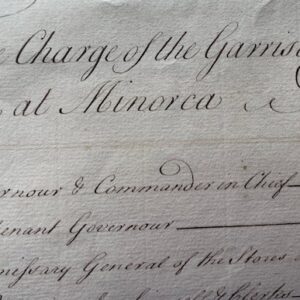 Charge of the Garris
at Minorca
rnour & Commander in Chief
tenant Governour
missary General of the Stores